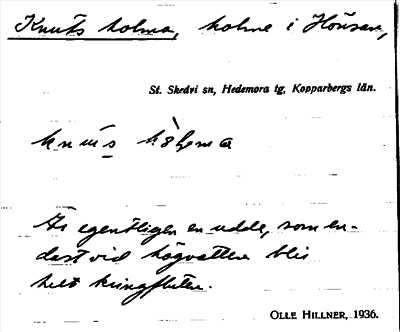 Knuts holma, holme i Hönsan,
St. Skedvi sn, Hedemora tg, Kopparbergs län.
knūs
Är egentligen en udde, som en-
dast vid högvatten blir
helt kringfluten.
OLLE HILLNER, 1936.